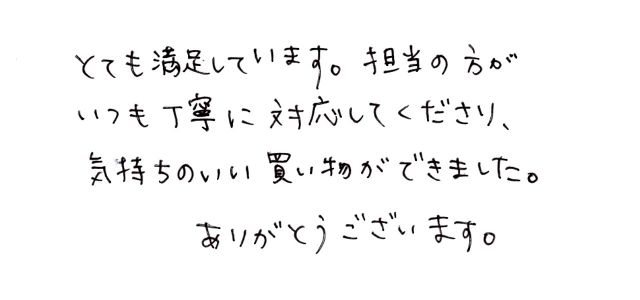 とても満足しています。担当の方が
いつも丁寧に対応してくださり、
気持ちのいい買い物ができました。
ありがとうございます。